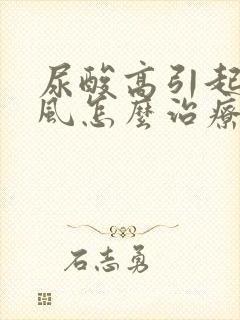 尿酸高引起
風怎麼治療
石志勇